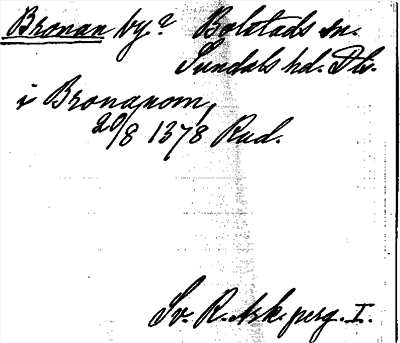 Bronan by? Bolstads sn.
Sundals hd. Dls.
i Bronanom,
20/8 1378 Rad.
Sv. R. Ark. perg. I.